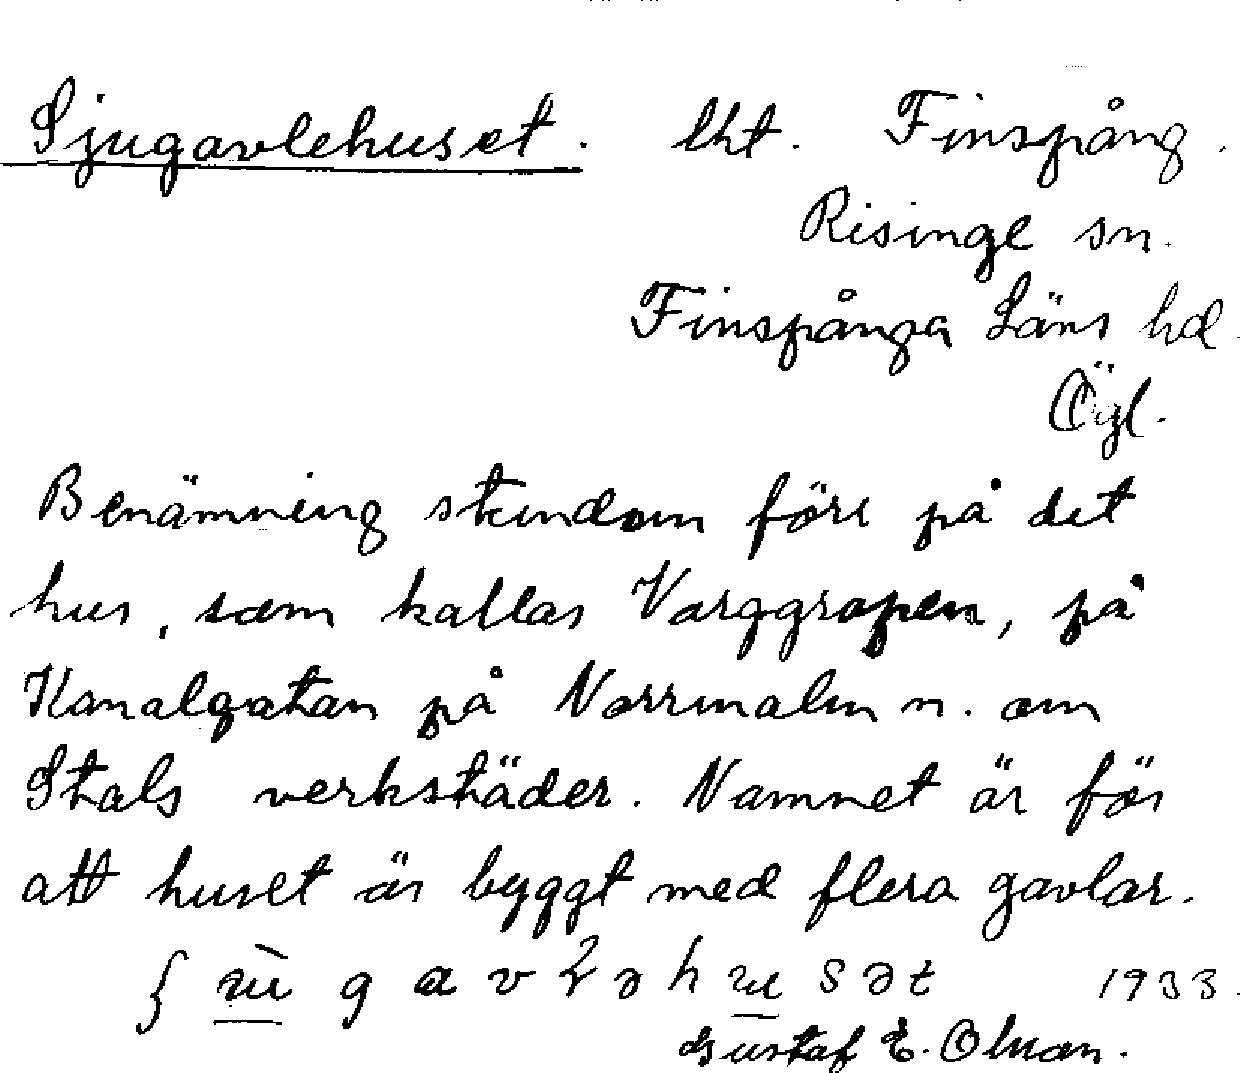 Sjugavlehuset. lht. Finspång.
Risinge sn.
Finspånga Läns hd.
Ögl.
Benämning stundom förr på det
hus, som kallas Varggropen, på
Kanalgatan på Norrmalm n. om
Stals verkstäder. Namnet är för
att huset är byggt med flera gavlar.
1933.
Gustaf E. Olson.